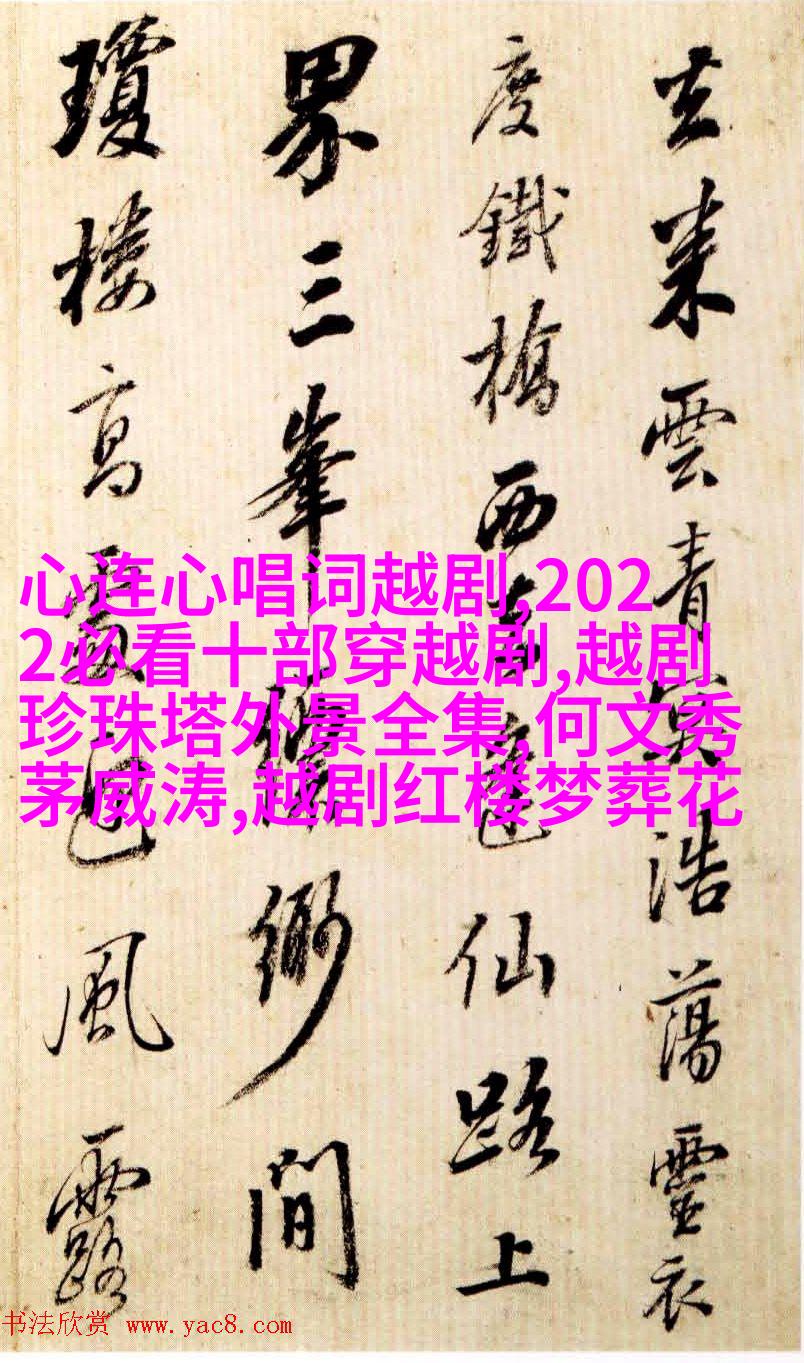 去来雲青冥浩蕩靈衣
度鐵橋西仙路上
界三峯縹緲間
瓊樓高處風露
心连心唱词越剧,202
2必看十部穿越剧,越剧
珍珠塔外景全集,何文秀
茅威涛,越剧红楼梦葬花
书法欣赏 www.yac8.com